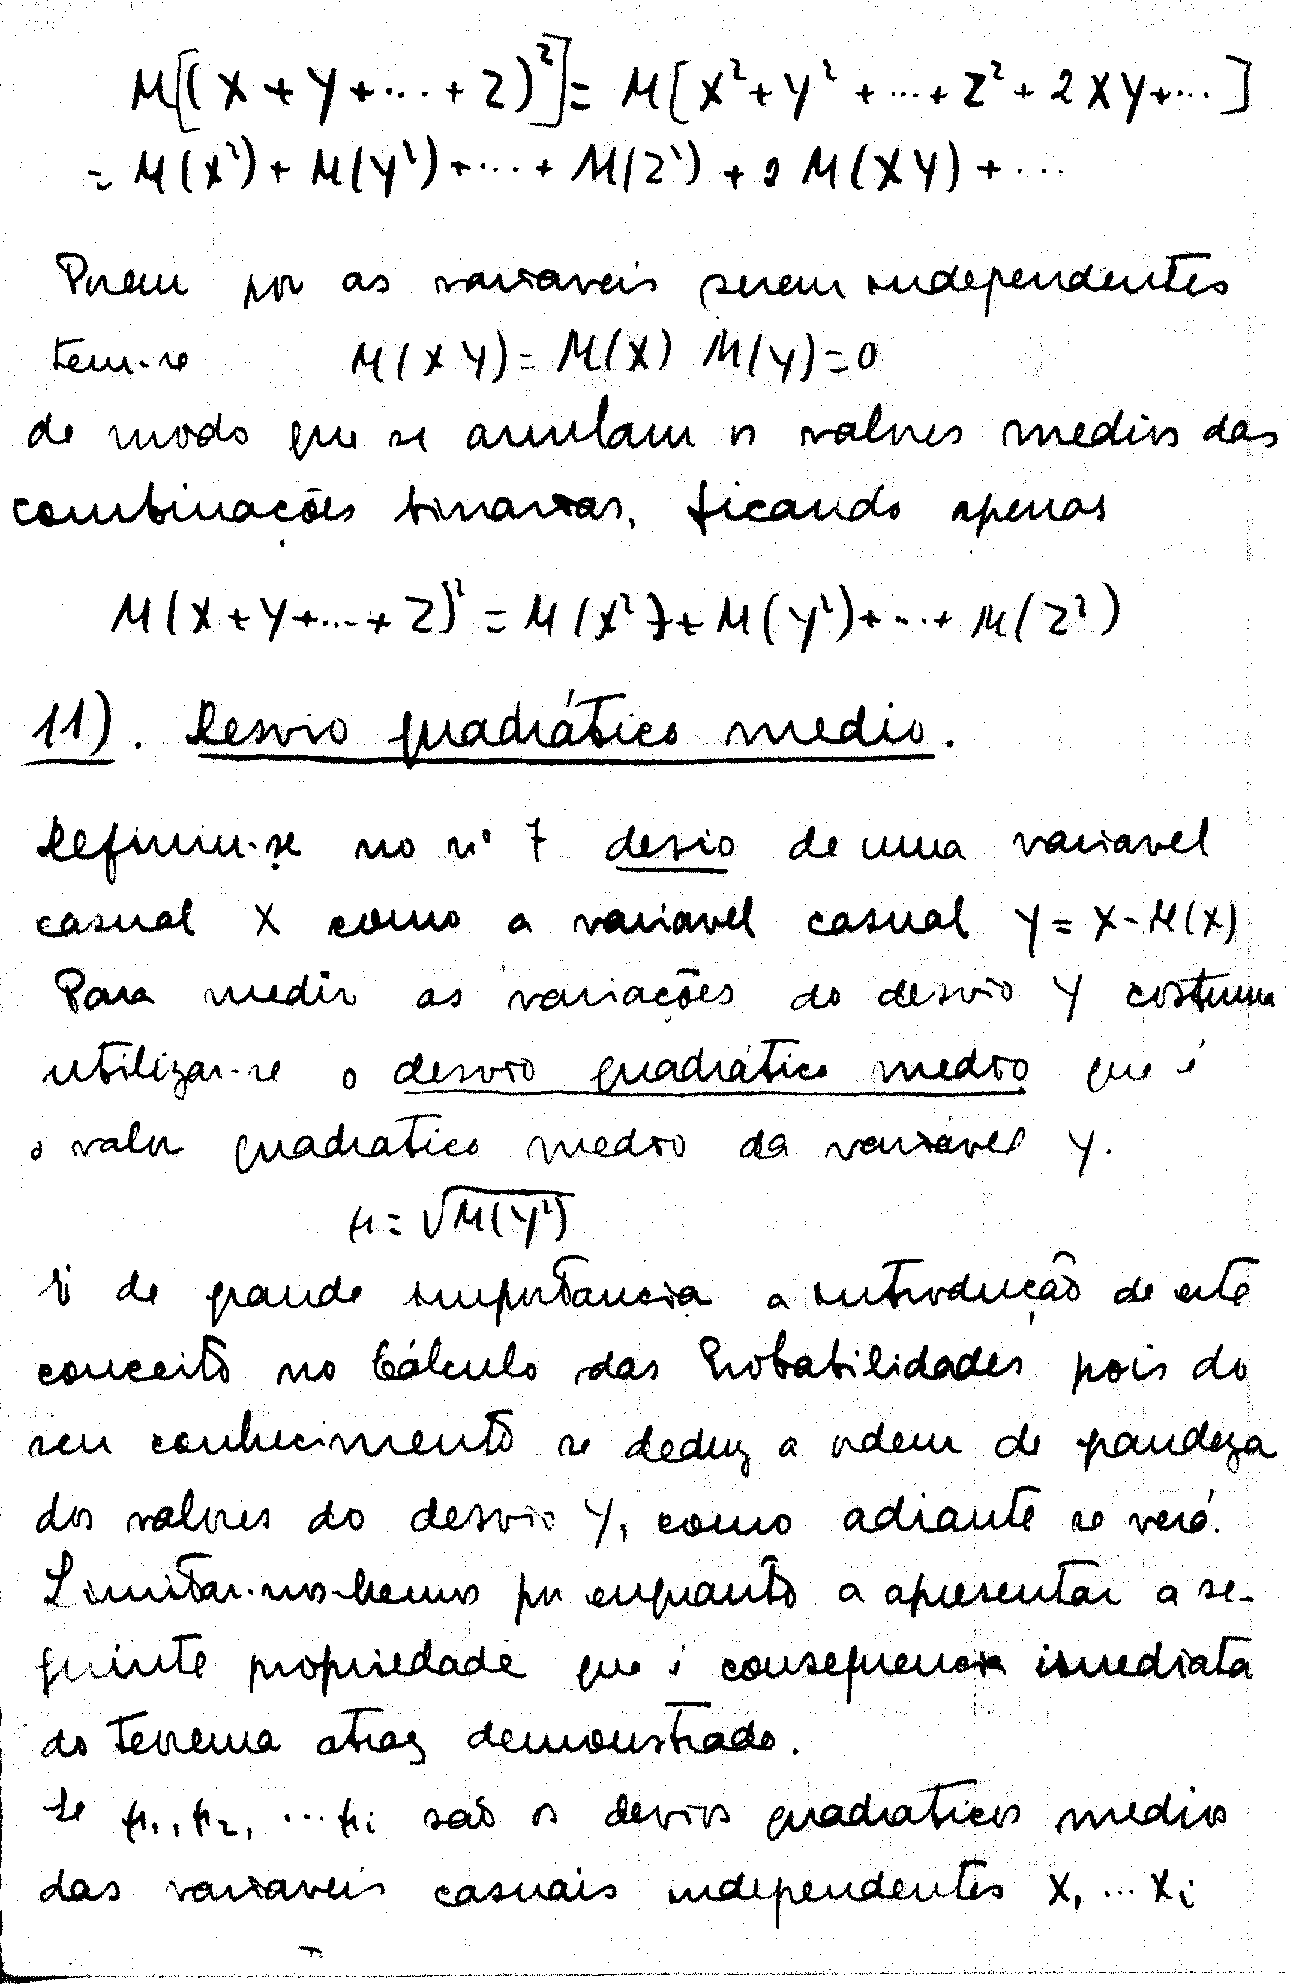 M[(X+Y+...+Z)²] = M[X²+Y²+...+Z²+2XY+...]
= M(X²)+M(Y²)+...+M(Z²)+2M(XY)+...
Porem por as variaveis serem independentes
tem-se M(XY)=M(X) M(Y)=0
de modo que se anulam os valores medios das
combinações binarias, ficando apenas
M(X+Y+...+Z)² = M(X²)+M(Y²)+...+M(Z²)
11). Desvio quadrático medio.
Definiu-se no nº 7 desio de uma variavel
casual X como a variavel casual Y=X-M(X)
Para medir as variações do desvio Y costuma
utilizar-se o desvio quadrático medio que é
o valor quadratico medio da variável Y.
μ=√M(Y²)
É de grande importancia a introdução de este
conceito no Cálculo das Probabilidades pois do
seu conhecimento se deduz a ordem de grandeza
dos valores do desvio Y, como adiante se verá.
Limitar-nos-hemos por enquanto a apresentar a se-
guinte propriedade que é consequencia imediata
do teorema atraz demonstrado.
Se μ₁, μ₂, ...μi são os desvios quadraticos medios
das variaveis casuais independentes X₁ ... Xi